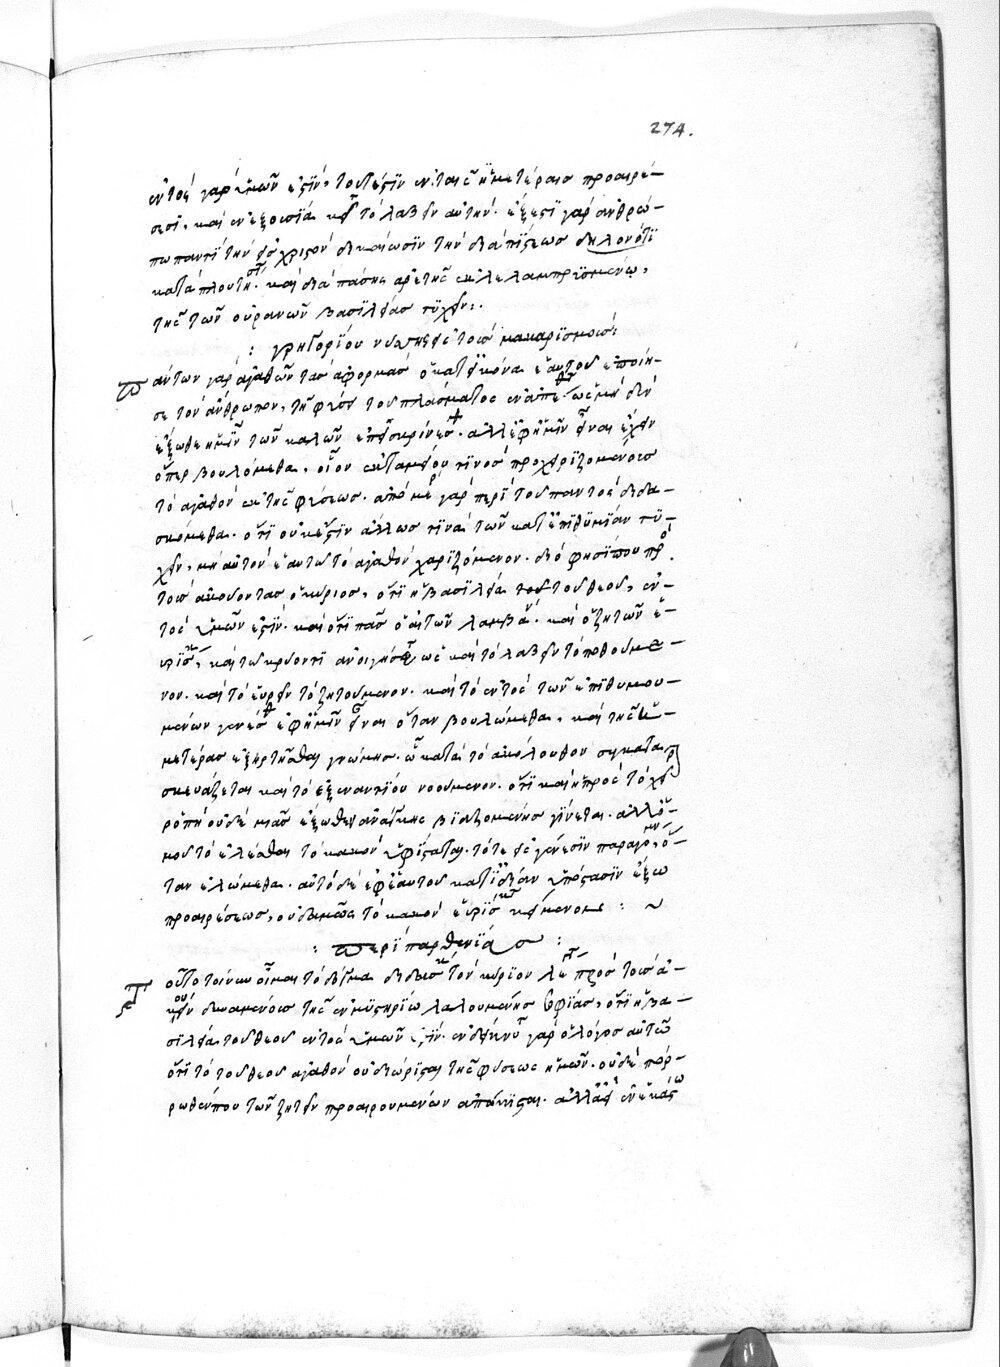 274.
ἐντὸς γὰρ ὑμῶν ἐστὶν, τουτέστιν ἐν ταῖς ἡμετέραις προαιρέ-
σεσι, καὶ ἐν ἐξουσία κεῖται τὸ λαβεῖν αὐτήν· ἔξεστι γὰρ ἀνθρώ-
πω παντὶ τὴν ἐν χριστῶ δικαίωσιν τὴν διὰ πίστεως δηλονότι
καταπλουτῆσαι· καὶ διὰ πάσης ἀρετῆς ἐκλελαμπρυσμένω,
τῆς τῶν οὐρανῶν βασιλείας τυχεῖν:.
: γρηγορίου νύσσης εἰς τοὺς μακαρισμούς:
Πάντων γὰρ ἀγαθῶν τὰς ἀφορμὰς ὁ κατ' εἰκόνα ἑαυτοῦ ποιή-
σας τὸν ἄνθρωπον, τῆ φύσει τοῦ πλάσματος ὡς μηδὲν
ἔξωθεν ἡμῖν τῶν καλῶν ἐπεισκρίνεσθαι· ἀλλ' ἐφ' ἡμῖν εἶναι ἔχειν
ὅπερ βουλόμεθα, οἷον ἐκ ταμείου τινὸς προχειριζομένους
τὸ ἀγαθὸν ἐκ τῆς φύσεως· ἀπὸ μέρους γὰρ περὶ τοῦ παντὸς διδα-
σκόμεθα· ὅτι οὐκ ἔστιν ἄλλως τινὰ τῶν κατ' ἐπιθυμίαν τυ-
χεῖν, μὴ αὐτὸν ἑαυτῶ τὸ ἀγαθὸν χαριζόμενον· διό φησί που πρὸς
τοὺς ἀκούοντας ὁ κύριος, ὅτι ἡ βασιλεία τοῦ θεοῦ, ἐν-
τὸς ὑμῶν ἐστίν· καὶ ὅτι πᾶς ὁ αἰτῶν λαμβάνει· καὶ ὁ ζητῶν εὑ-
ρίσκει, καὶ τῶ κρούοντι ἀνοιγήσεται ὡς καὶ τὸ λαβεῖν τὸ ποθούμε-
νον· καὶ τὸ εὑρεῖν τὸ ζητούμενον· καὶ τὸ ἐντὸς τῶν ἐπιθυμου-
μένων γενέσθαι ἐφ' ἡμῖν εἶναι ὅταν βουλώμεθα, καὶ τῆς ἡ-
μετέρας ἐξηρτῆσθαι γνώμης· ὧ κατὰ τὸ ἀκόλουθον συγκατα-
σκευάζεται καὶ τὸ ἐξ ἐναντίου νοούμενον· ὅτι καὶ ἡ πρὸς τὸ χεῖρον
ῥοπὴ οὐδὲ μιᾶς ἔξωθεν ἀνάγκης βιαζομένης γίνεται· ἀλλ' ὁ-
μοῦ τὸ ἑλέσθαι τὸ κακὸν ὑφίσταται, τότε εἰς γένεσιν παραγόμενον, ὅ-
ταν ἑλώμεθα· αὐτὸ δὲ ἐφ' ἑαυτοῦ κατ' ἰδίαν ὑπόστασιν ἔξω
προαιρέσεως, οὐδαμῶς τὸ κακὸν εὑρίσκεται κείμενον: ~
: περὶ παρθενίας :
Τοῦτο τοίνυν οἶμαι τὸ δόγμα διδάσκειν τὸν κύριον λέγεται πρὸς τοὺς ἀ-
κούειν δυναμένους τῆς ἐν μυστηρίω λαλουμένης σοφίας, ὅτι ἡ βα-
σιλεία τοῦ θεοῦ ἐντὸς ὑμῶν ἐστίν· ἐνδείκνυται γὰρ ὁ λόγος αὐτῶ
ὅτι τὸ τοῦ θεοῦ ἀγαθὸν οὐ διώρισται τῆς φύσεως ἡμῶν· οὐδὲ πόρ-
ρωθέν που τῶν ζητεῖν προαιρουμένων ἀπώκισται· ἀλλ' ἀεὶ ἐν ἑκάστω